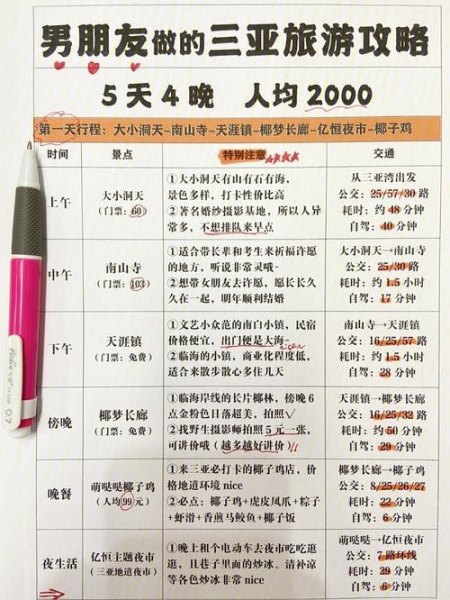 男朋友做的三亚旅游攻略
5天4晚 人均2000
第一天行程：大小洞天-南山寺-天涯镇-椰梦长廊-亿恒夜市-椰子鸡
时间 景点 特别注意 交通
上午
大小洞天
（门票：60）
①大小洞天有山有石有海，
景色多样，打卡性价比高
②著名婚纱摄影基地，所以人异
常多，不想排队来早点
从三亚湾出发
公交：25/57/30路
耗时：约48分钟
自驾：40分钟
中午
南山寺
（门票：103）
①适合带长辈和考生来祈福许愿
的地方，听说非常灵哦~
②想带女朋友去许愿，愿长长久
久在一起，明年顺利结婚
大小洞天→南山寺
公交：25/30路
耗时：约1.5小时
自驾：17分钟
下午
天涯镇
（门票：免费）
①文艺小众范的南白小镇，民宿
价格便宜，出门便是大海~
②临海的小镇，商业化程度低，
适合来散步散心多住几天
南山寺→天涯镇
公交：16/25/57路
耗时：约1.5小时
自驾：28分钟
傍晚
椰梦长廊
（门票：免费）
①临海岸线的长片椰林，傍晚6
点金粉色日落超美，拍照✓
②找野生摄影师拍照5元一张，
可讲价哦（越多越好讲价）!!
天涯镇→椰梦长廊
公交：16/25/32路
耗时：约50分钟
自驾：29分钟
晚餐
萌哒哒椰子鸡
（人均99元）
①来三亚必打卡的椰子鸡店，价
格地道环境nice
②必点：椰子鸡+虎皮凤爪+粽子
+虾滑+香煎马鲛鱼+椰子饭
椰梦长廊→椰子鸡
公交：8/25/26/27
耗时：22分钟
自驾：6分钟
夜生活
亿恒主题夜市
（三亚地道夜市）
①晚上租个电动车去夜市吃吃逛
逛，且巷子里面的炒冰、清补凉
等各色炒冰非常nice
萌哒哒→亿恒夜市
公交：7路环线
耗时：29分钟
自驾：6分钟
0.7